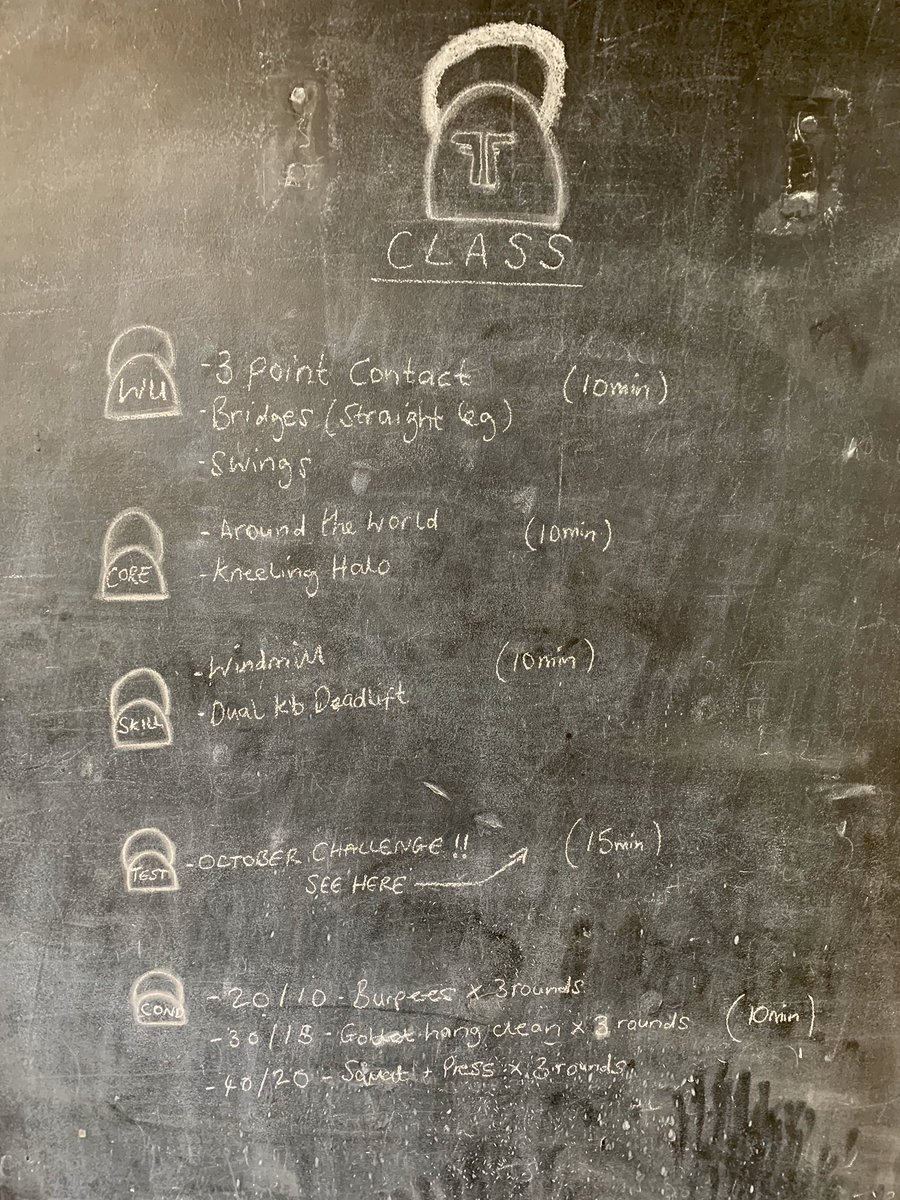 T
CLASS
WU
- 3 Point Contact (10min)
- Bridges (Straight leg)
- Swings
CORE
- Around the World (10min)
- Kneeling Halo
SKILL
- Windmill (10min)
- Dual kb Deadlift
TEST
- OCTOBER CHALLENGE!! (15min)
SEE HERE
COND
- 20/10 - Burpees x 3 rounds
- 30/15 - hang clean x 3 rounds (10min)
- 40/20 - Squat + Press x 3 rounds